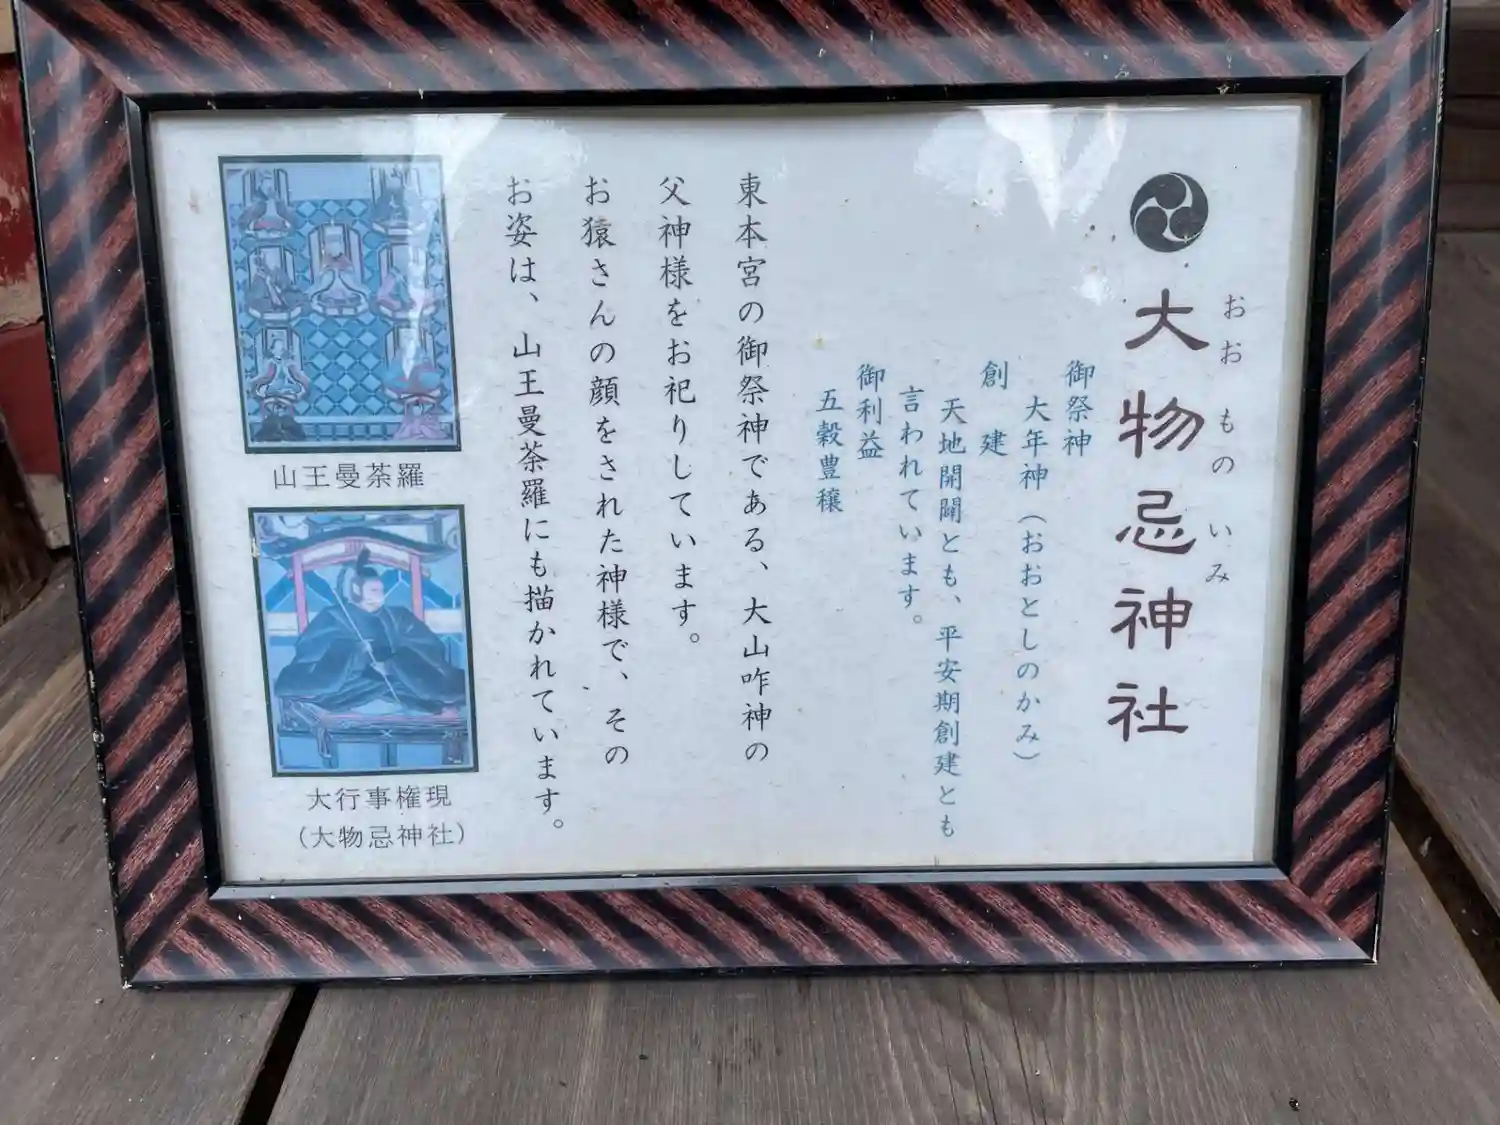 大物忌神社
おお もの いみ
御祭神
大年神（おおとしのかみ）
創建
天地開闢とも、平安期創建とも
言われています。
御利益
五穀豊穣
東本宮の御祭神である、大山咋神の
父神様をお祀りしています。
お猿さんの顔をされた神様で、その
お姿は、山王曼荼羅にも描かれています。
山王曼荼羅
大行事権現
（大物忌神社）